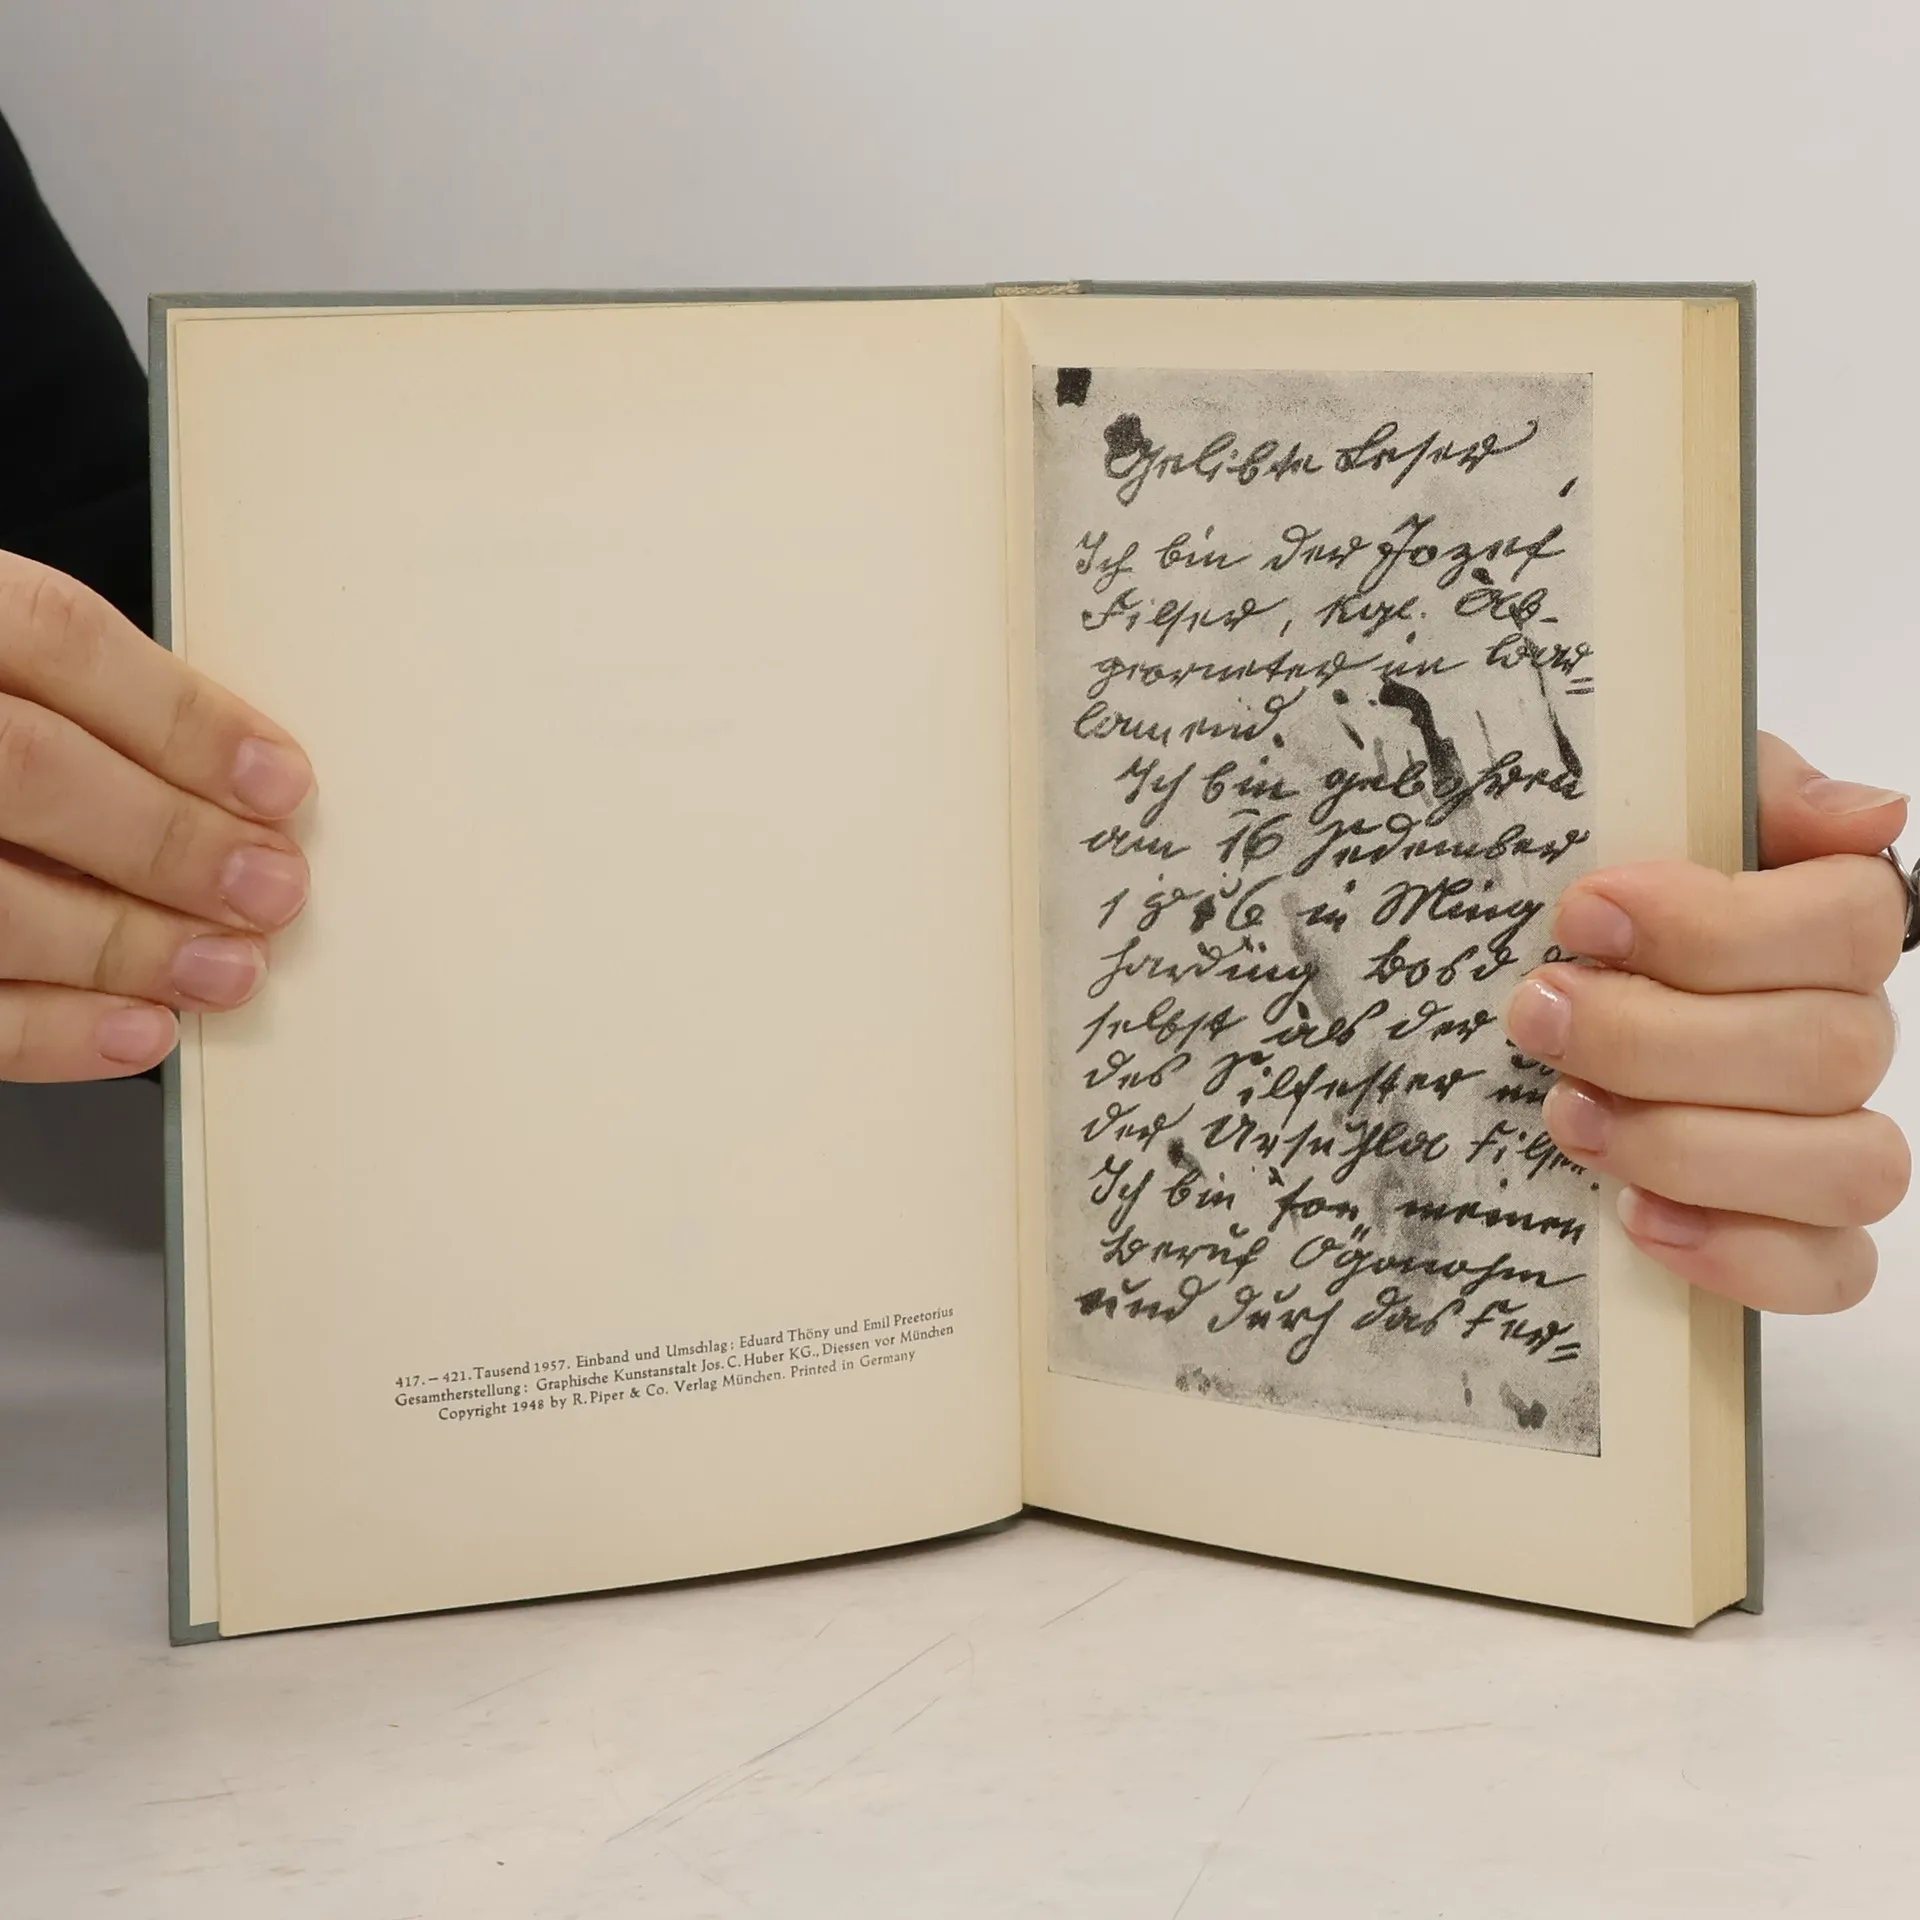 417.–421. Tausend 1957. Einband und Umschlag: Eduard Thöny und Emil Preetorius
Gesamtherstellung: Graphische Kunstanstalt Jos. C. Huber KG., Diessen vor München
Copyright 1948 by R. Piper & Co. Verlag München. Printed in Germany
Gelibte Leser
Ich bin der Jozef
Filser, kgl. Ab-
georneter im bar=
lamend.
Ich bin gebohren
am 16 Sedember
in Ming
harding Bosd
selbst als der
des Silfester
der Ursuhla Filser.
Ich bin fon meinen
Beruf Ögonohm
und durch das Fer=